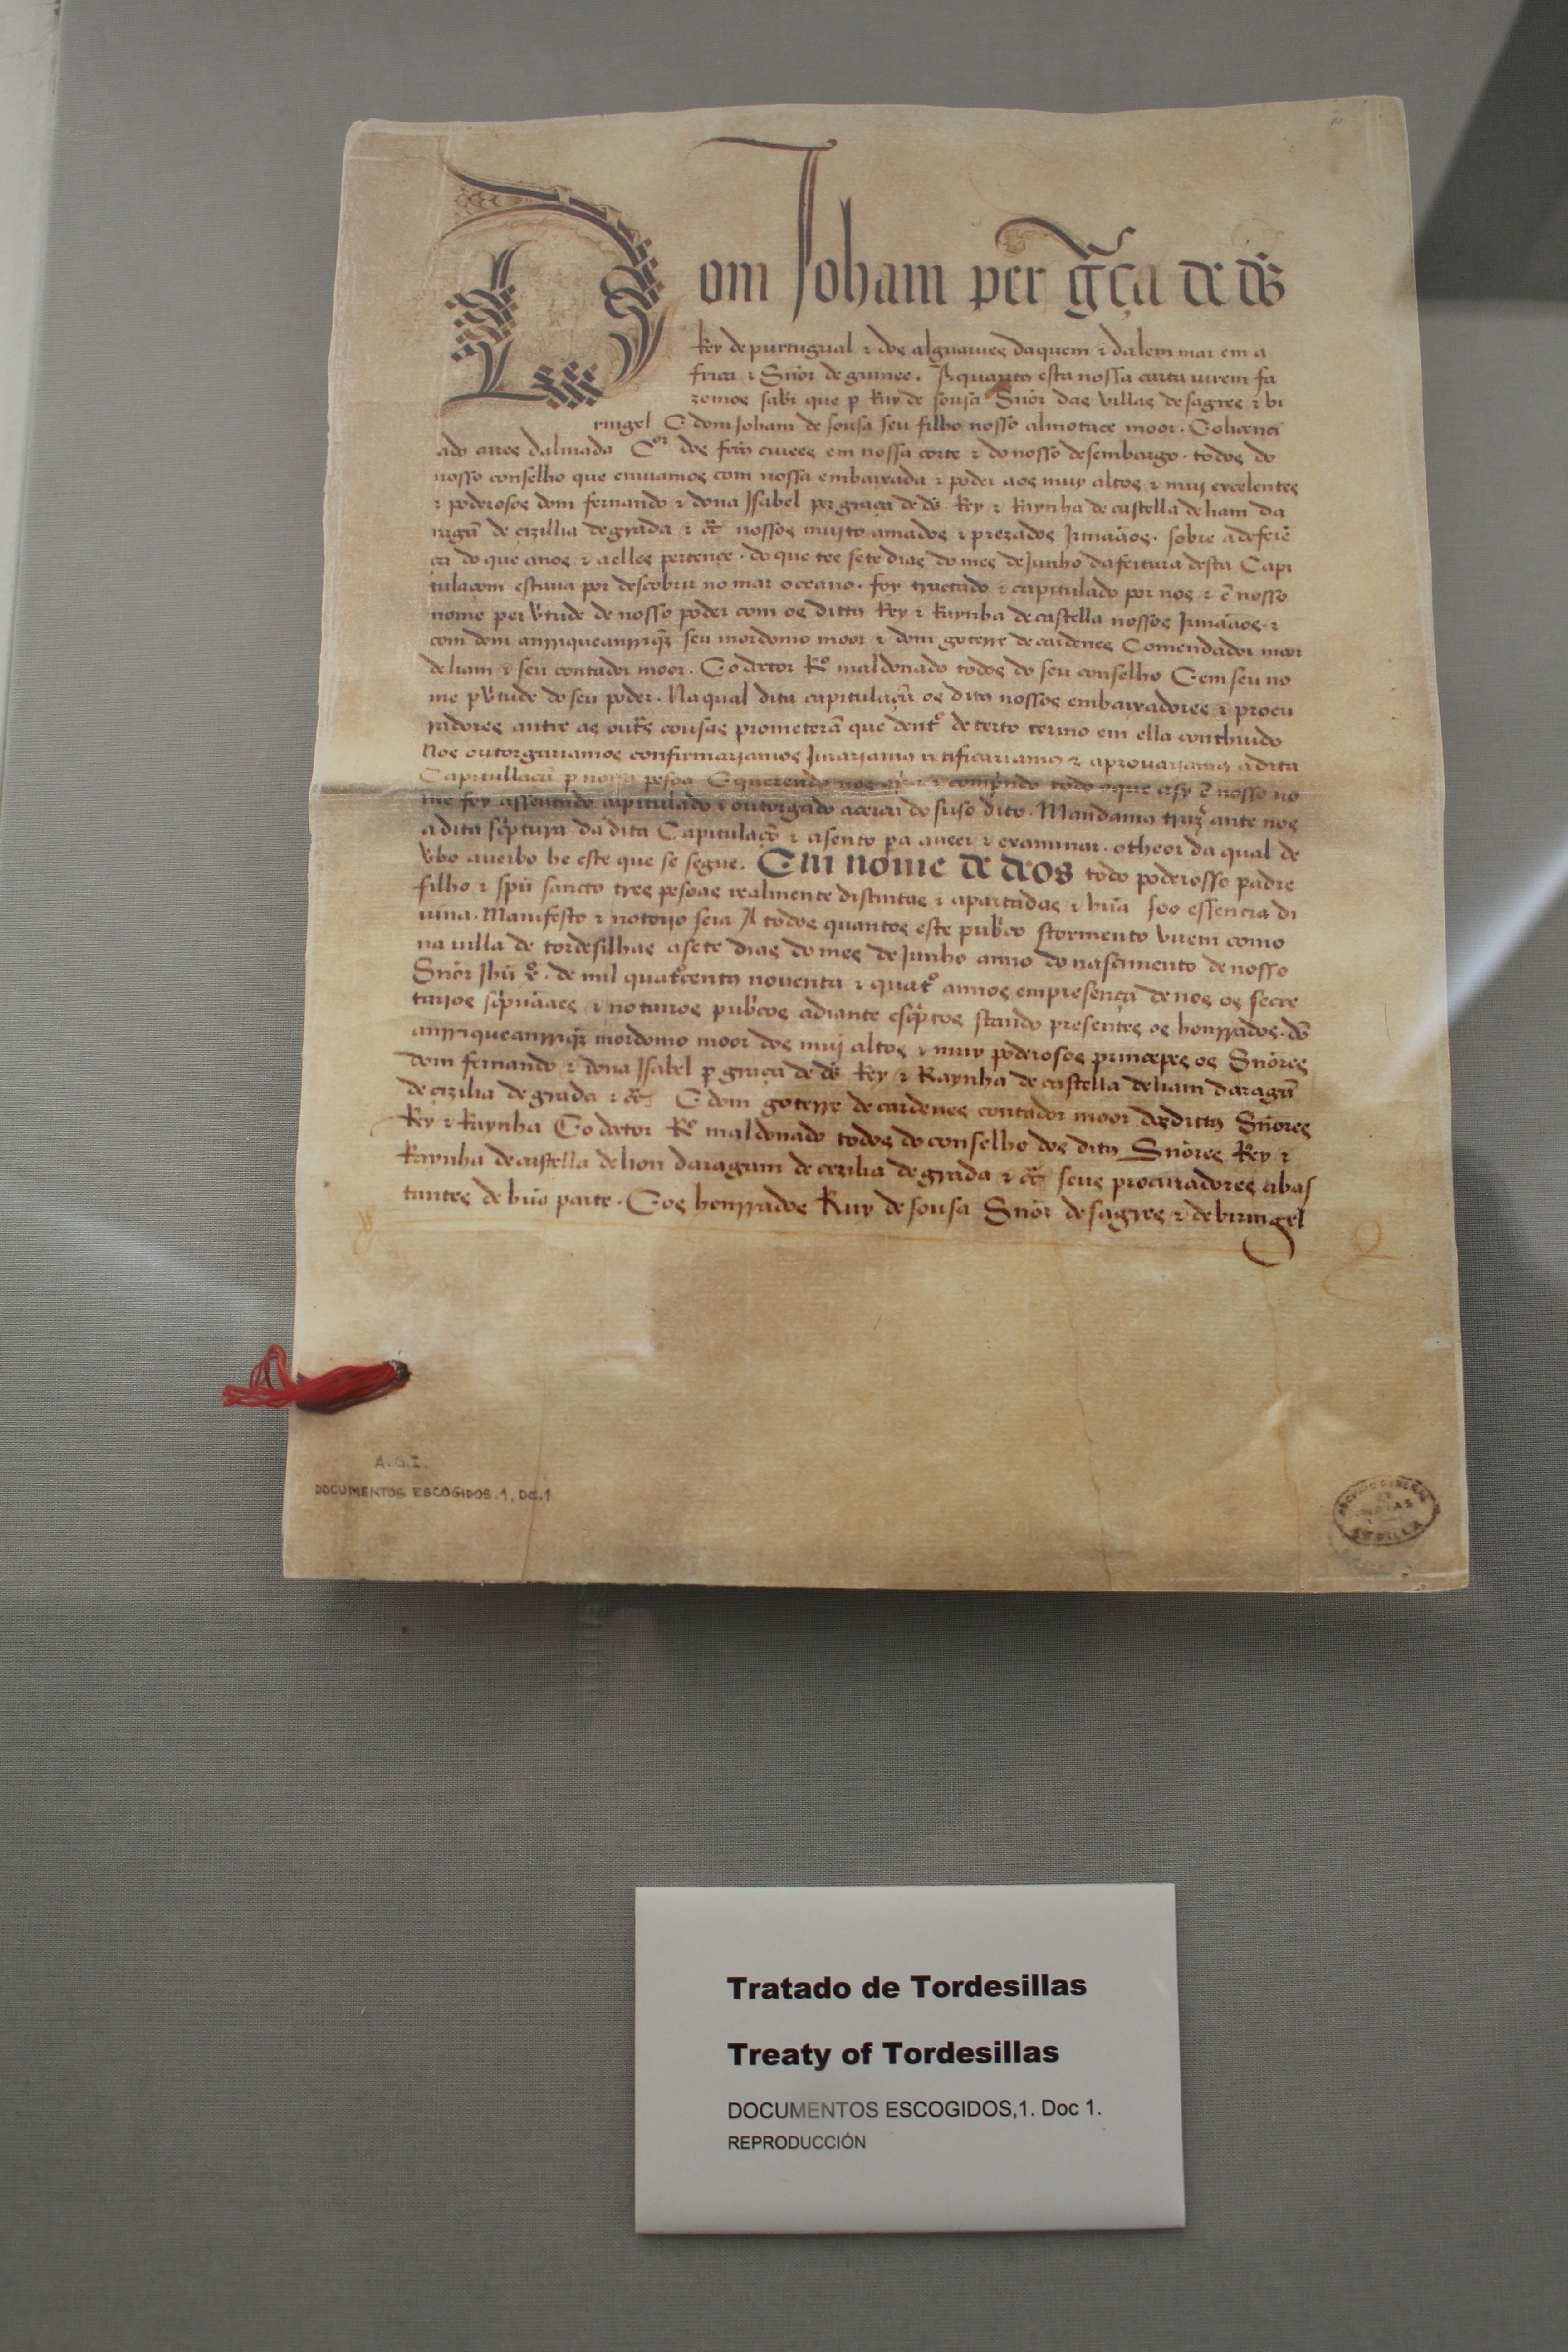 Dom Joham per gr̃ça de ds̃
Rey de purtugual ⁊ dos alguarues daquem ⁊ dalem mar em a
frica ⁊ Sñor de guinee. A quantos esta nossa carta virem fa
zemos sabr̃ que p Ruy de sousa Sñor das villas de sagres ⁊ bi
ringel E dom Joham de sousa seu filho nosso almotace moor. E o licenci
ado aires dalmada Cor dos fectos ciuees em nossa corte ⁊ do nosso desembargo. todos do
nosso conselho que enuiamos com nossa embaixada ⁊ poder aos muy altos ⁊ muy excelentes
⁊ poderosos dom fernando ⁊ dona Isabel per graça de ds̃. Rey ⁊ Raynha de castella de liam da
ragã de cizillia de grada ⁊ cẽ nossos muyto amados ⁊ prezados Irmaãos. sobre a deferẽ
ça do que a nos ⁊ a elles pertençe. do que tee sete dias do mes de Junho da feitura desta Capi
tulacom estaua por descobrir no mar oceano. foy tractado ⁊ capitulado por nos ⁊ ẽ nosso
nome per vtude de nosso poder com os dittos Rey ⁊ Raynha de castella nossos Irmaãos. ⁊
com dom anrrique anrriqz̃ seu mordomo moor ⁊ dom goterre de cardenes Comendador moor
de liam ⁊ seu contador moor. E o doctor Ro maldonado todos do seu conselho E em seu no
me p vtude do seu poder. Na qual dita capitulaçã os ditos nossos embaixadores ⁊ procu
radores antre as outs̃ cousas prometerã que dento de certo termo em ella conthiudo
Nos outorgariamos confirmariamos Jurariamos retificariamos ⁊ aprouariamos a dita
Capitullaçã p nossa pesoa E querendo nos ⁊ comprindo todo o que asy ẽ nosso no
me foy assentado capitulado ⁊ outorgado acerca do suso dito. Mandamos trazr̃ ante nos
a dita scptura da dita Capitulaçõ ⁊ asento pa a ueer ⁊ examinar. o theor da qual de
vbo a uerbo he este que se segue. Em nome de deos todo poderosso padre
filho ⁊ spũ sancto tres pesoas realmente distintas ⁊ apartadas ⁊ hũa soo essencia di
uina. Manifesto ⁊ notorio seia A todos quantos este pubco stormento virem como
na villa de tordesilhas a sete dias do mes de Junho anno do nascimento de nosso
Sñor Jhũ xo. de mil quatocentos nouenta ⁊ quato annos em presença de nos os secre
tarios scpuaães ⁊ notarios pubcos adiante escptos stando presentes os honrrados. dõ
anrrique anrriqz̃ mordomo moor dos muj altos ⁊ muy poderosos princepes os Sñores
dom fernando ⁊ dona Isabel p graça de ds̃ Rey ⁊ Raynha de castella de liam daragã
de cizilia de grada ⁊ cẽ E dom goterre de cardenes contador moor dos dittos Sñores
Rey ⁊ Raynha E o doctor Ro maldonado todos do conselho dos ditos Sñores Rey ⁊
Raynha de castella de lion daragam de cezilia de grada ⁊ cẽ seus procuradores abas
tantes de hũa parte. E os honrrados Ruy de sousa Sñor de sagres ⁊ de biringel
A.G.I.
DOCUMENTOS ESCOGIDOS.1, Dc.1
ARCHIVO GENERAL
DE
INDIAS
SEVILLA
Tratado de Tordesillas
Treaty of Tordesillas
DOCUMENTOS ESCOGIDOS,1. Doc 1.
REPRODUCCIÓN